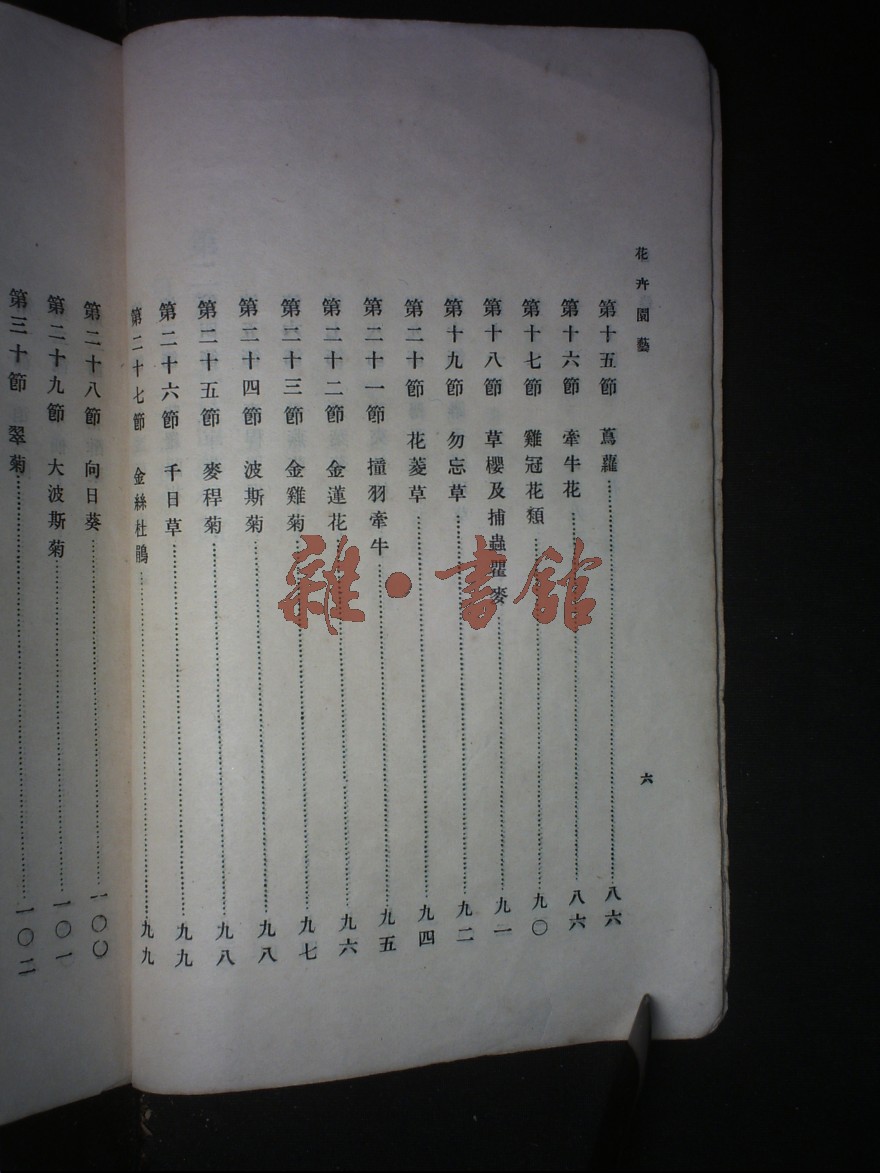 花卉園藝
六
第十五節 蔦蘿 八六
第十六節 牽牛花 八六
第十七節 雞冠花類 九〇
第十八節 草櫻及捕蟲瞿麥 九一
第十九節 勿忘草 九二
第二十節 花菱草 九四
第二十一節 撞羽牽牛 九五
第二十二節 金蓮花 九六
第二十三節 金雞菊 九七
第二十四節 波斯菊 九八
第二十五節 麥稈菊 九八
第二十六節 千日草 九九
第二十七節 金絲杜鵑 九九
第二十八節 向日葵 一〇〇
第二十九節 大波斯菊 一〇一
第三十節 翠菊 一〇二
雜·書館